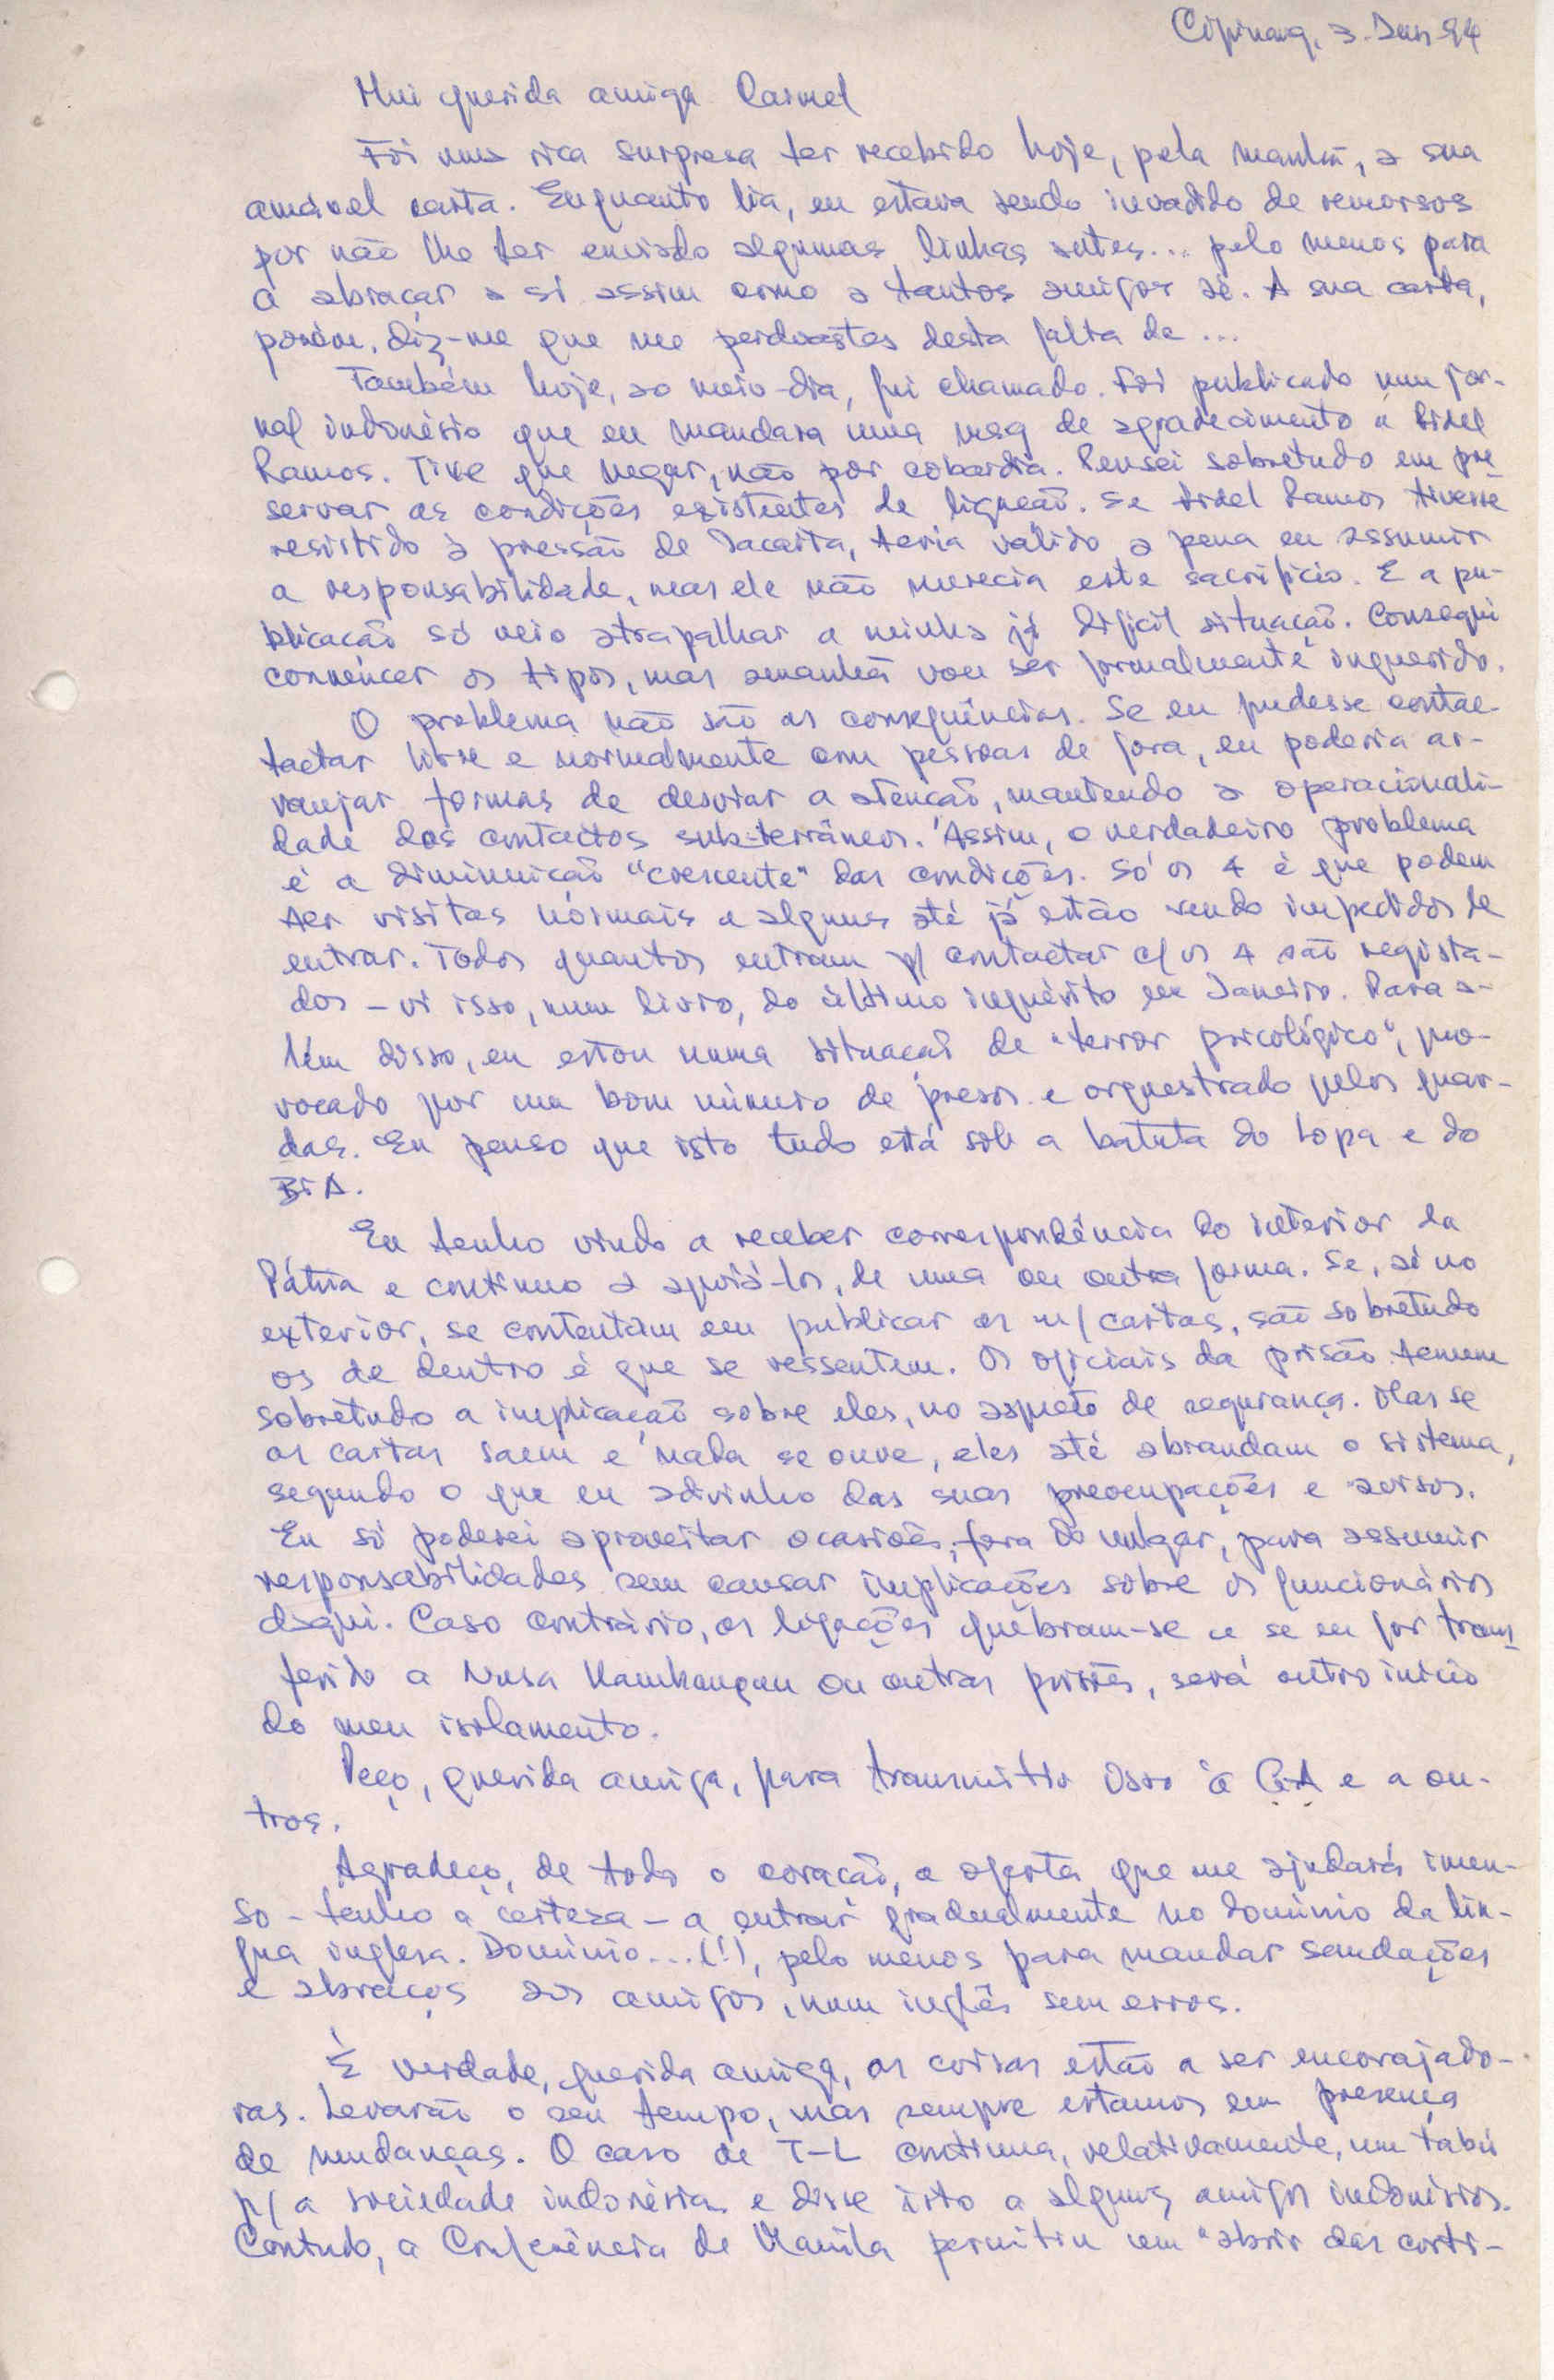 Cipinang, 3. Jun 94
Mui querida amiga Carmel
Foi uma rica surpresa ter recebido hoje, pela manhã, a sua
amável carta. Enquanto lia, eu estava sendo invadido de remorsos
por não lhe ter enviado algumas linhas antes... pelo menos para
a abraçar a si assim como a tantos amigos aí. A sua carta,
porém, diz-me que me perdoastes desta falta de ...
Também hoje, ao meio-dia, fui chamado. Foi publicado num jor-
nal indonésio que eu mandara uma msg de agradecimento a Fidel
Ramos. Tive que negar, não por cobardia. Pensei sobretudo em pre
servar as condições existentes de ligação. Se Fidel Ramos tivesse
resistido à pressão de Jacarta, teria valido a pena eu assumir
a responsabilidade, mas ele não merecia este sacrifício. E a pu-
blicação só veio atrapalhar a minha já difícil situação. Consegui
convencer os tipos, mas amanhã vou ser formalmente inquerido.
O problema não são as consequências. Se eu pudesse contac-
tactar livre e normalmente com pessoas de fora, eu poderia ar-
ranjar formas de desviar a atenção, mantendo a operacionali-
dade dos contactos sub-terrâneos. Assim, o verdadeiro problema
é a diminuição "crescente" das condições. Só os 4 é que podem
ter visitas normais e alguns até já estão sendo impedidos de
entrar. Todos quantos entram p/ contactar c/ os 4 são regista-
dos - vi isso, num livro, do último inquérito em Janeiro. Para a-
lém disso, eu estou numa situação de "terror psicológico", pro-
vocado por um bom número de presos e orquestrado pelos guar-
das. Eu penso que isto tudo está sob a batuta do Lopa e do
BIA.
Eu tenho vindo a receber correspondência do interior da
Pátria e continuo a apoiá-los, de uma ou outra forma. Se, aí no
exterior, se contentam em publicar as m/ cartas, são sobretudo
os de dentro é que se ressentem. Os oficiais da prisão temem
sobretudo a implicação sobre eles, no aspecto de segurança. Mas se
as cartas saem e nada se ouve, eles até abrandam o sistema,
segundo o que eu adivinho das suas preocupações e avisos.
Eu só poderei aproveitar ocasiões, fora do vulgar, para assumir
responsabilidades sem causar implicações sobre os funcionários
daqui. Caso contrário, as ligações quebram-se e se eu for trans
ferido a Nusa Kambangan ou outras prisões, será outro início
do meu isolamento.
Peço, querida amiga, para transmitir isso à e a ou-
tros.
Agradeço, de todo o coração, a oferta que me ajudará imen-
so - tenho a certeza - a entrar gradualmente no domínio da lín-
gua inglesa. Domínio...(!), pelo menos para mandar saudações
e abraços aos amigos, num inglês sem erros.
É verdade, querida amiga, as coisas estão a ser encorajado-
ras. Levarão o seu tempo, mas sempre estamos em presença
de mudanças. O caso de T-L continua, relativamente, um tabú
p/ a sociedade indonésia e disse isto a alguns amigos indonésios.
Contudo, a Conferência de Manila permitiu um "abrir das corti-